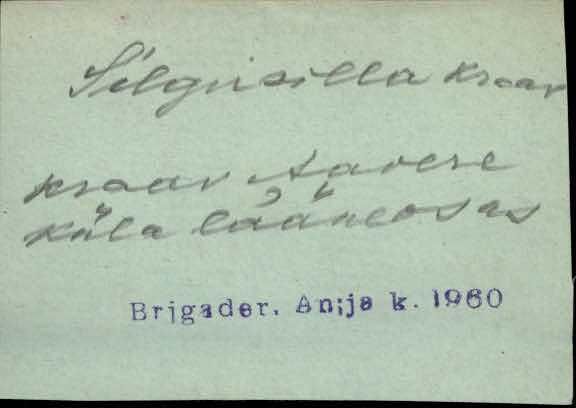 Silgusilla kraav
kraav Aavere
küla lääneosas
Brigader. Anija k. 1960